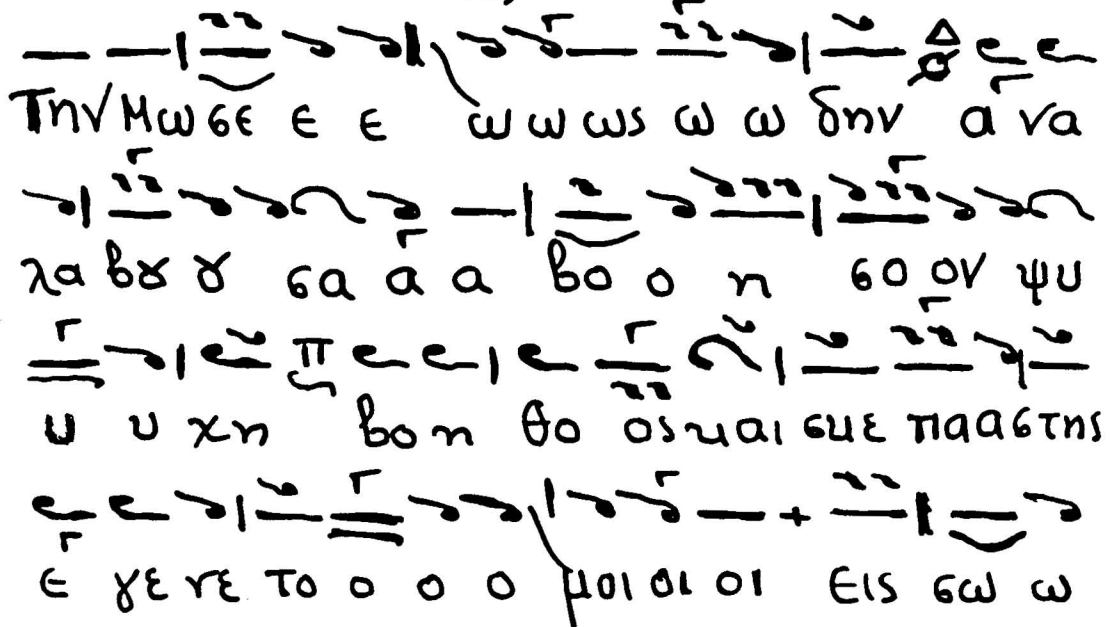 Την Μω σε ε ε ω ω ως ω ω δην α να
λα βȣ ȣ σα α α βο ο η σο ον ψυ
υ υ χη βο η θο ος και σκε πα α στης
ε γε νε το ο ο ο μοι οι οι εις σω ω